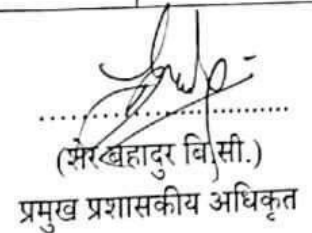 ....................................
(शेर बहादुर वि.सी.)
प्रमुख प्रशासकीय अधिकृत